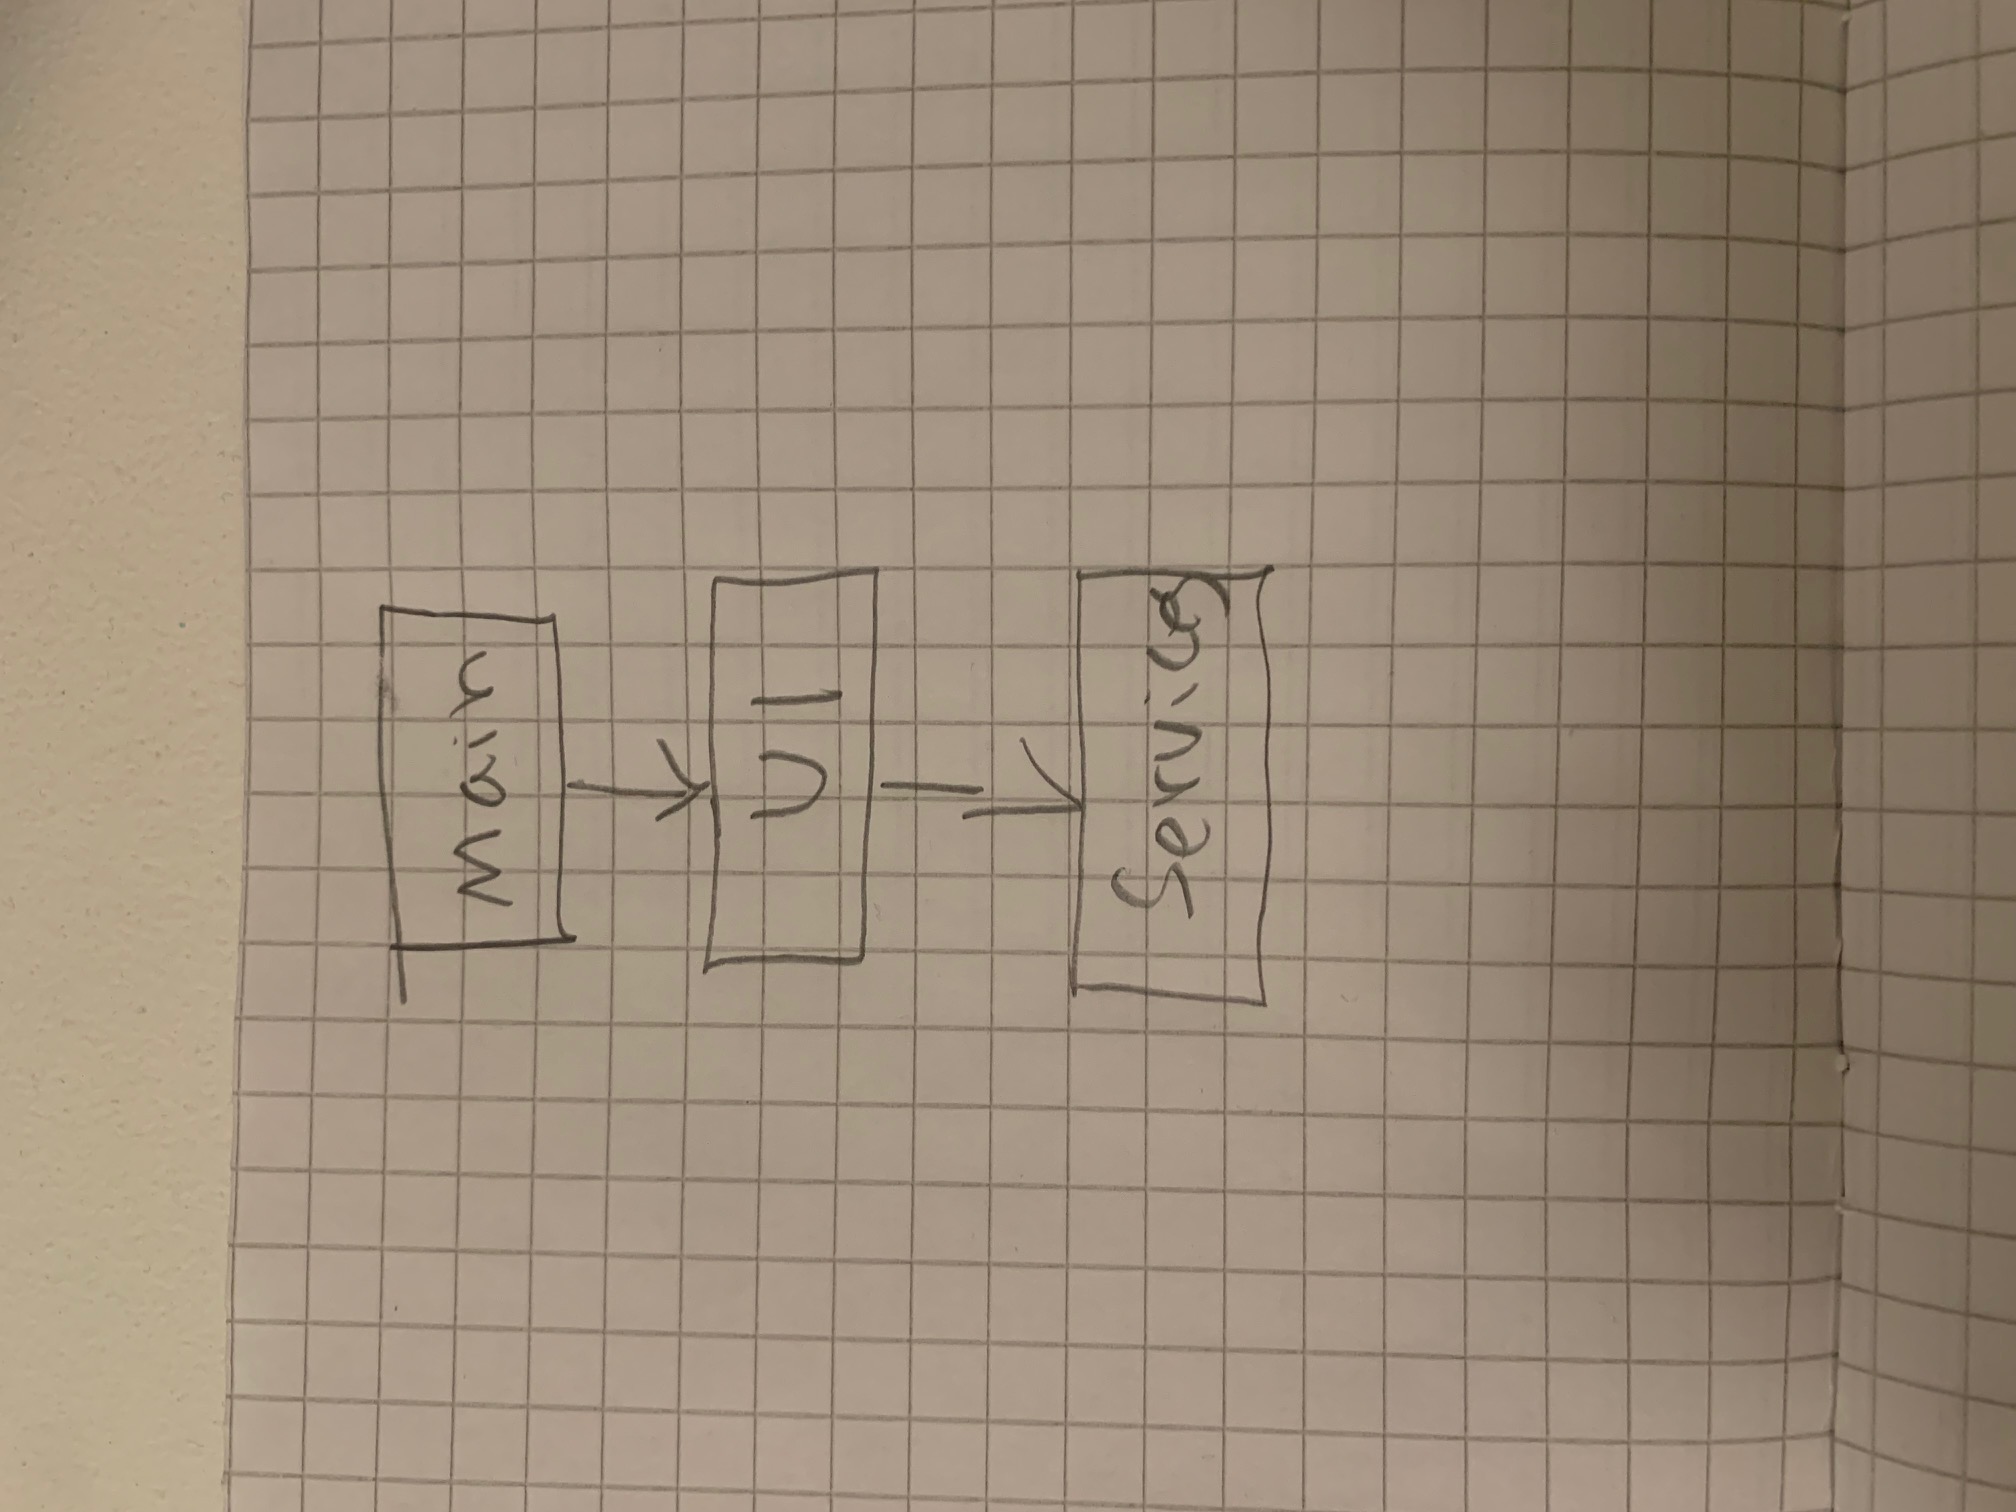 Main
UI
Services